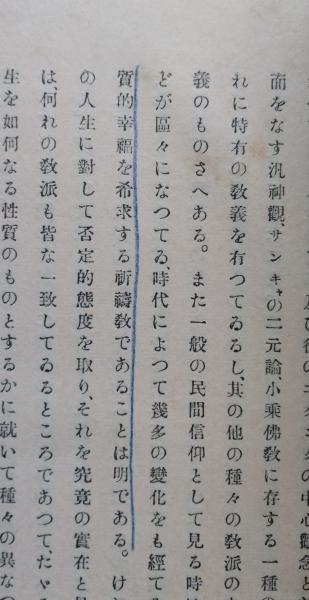 及び後の の中心觀念と
面をなす汎神觀、サンキャの二元論、小乘佛敎に存する一種の
れに特有の敎義を有つてゐるし、其の他の種々の敎派の
義のものさへある。また一般の民間信仰として見る時は
どが區々になつてゐ、時代によつて幾多の變化をも經て
質的幸福を希求する祈禱敎であることは明である。け
の人生に對して否定的態度を取り、それを究竟の實在と
は、何れの敎派も皆な一致してゐるところであつて、たゞ
生を如何なる性質のものとするかに就いて種々の異な